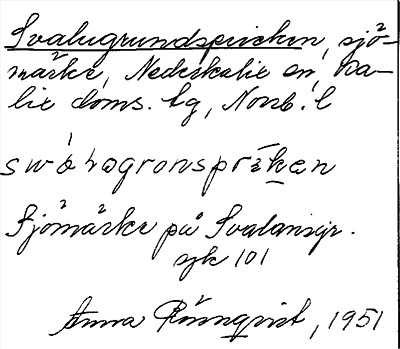 Svalugrundspricken, sjö-
märke, Nederkalix sn, Ka-
lix doms. lg, Norrb. l
Sjömärke på Svalansgr.
sjk 101
Anna Rönnqvist, 1951